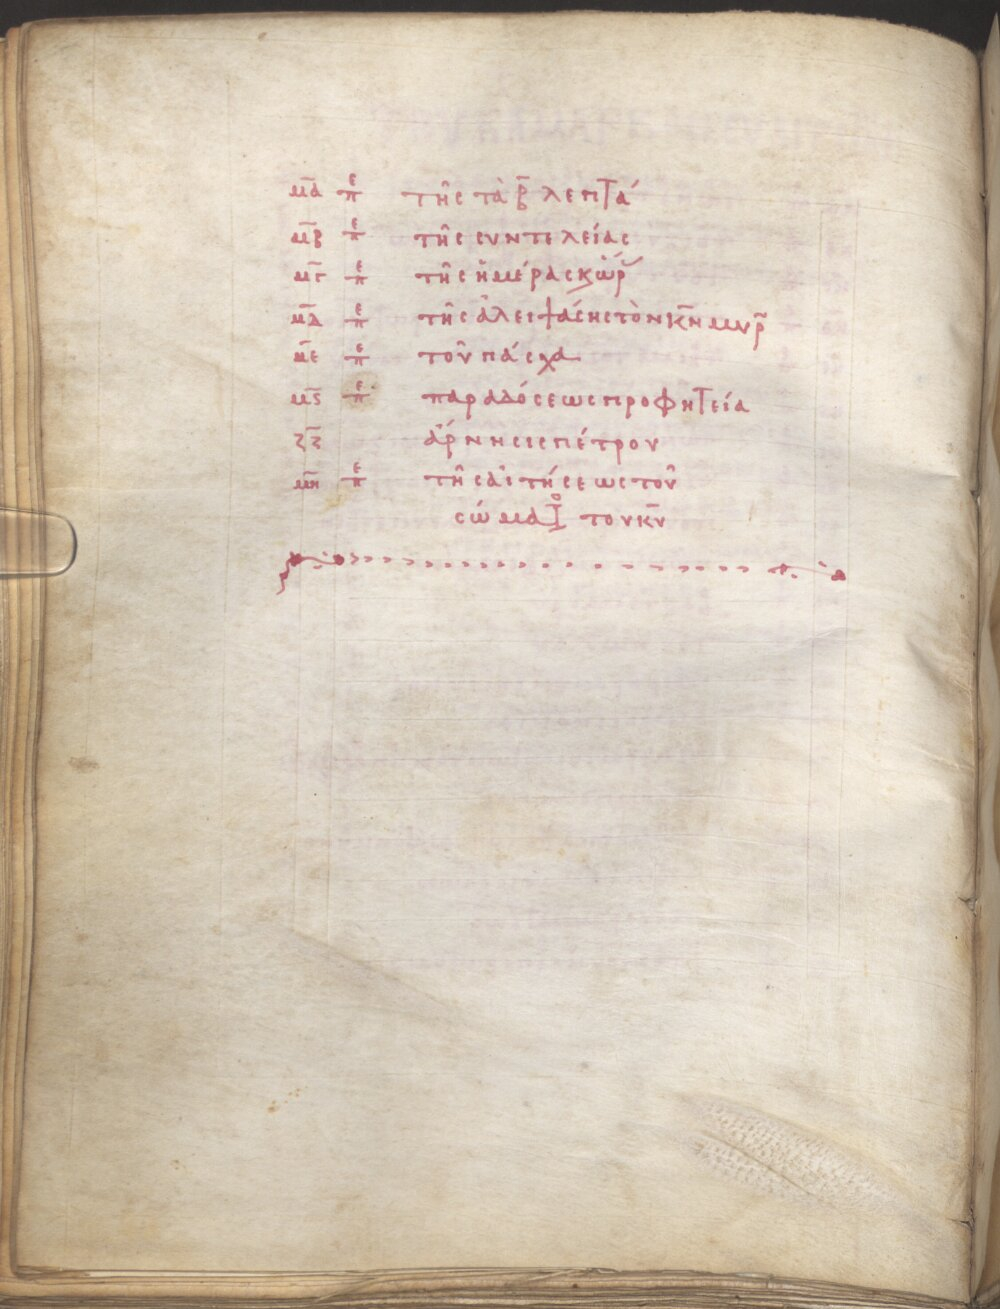 μ̅α̅ πε τῆς τὰ β̅ λεπτά
μ̅β̅ πε τῆς συντελείας
μ̅γ̅ πε τῆς ἡμέρας κ ὥρ
μ̅δ̅ πε τῆς ἀλειψάσης τὸν κ̅ν̅ μυρ
μ̅ε̅ πε τοῦ πάσχα
μ̅ς̅ πε παραδόσεως προφητεία
ἄρνησις πέτρου
μ̅η̅ πε τῆς αἰτήσεως τοῦ
σώματο τοῦ κ̅υ̅